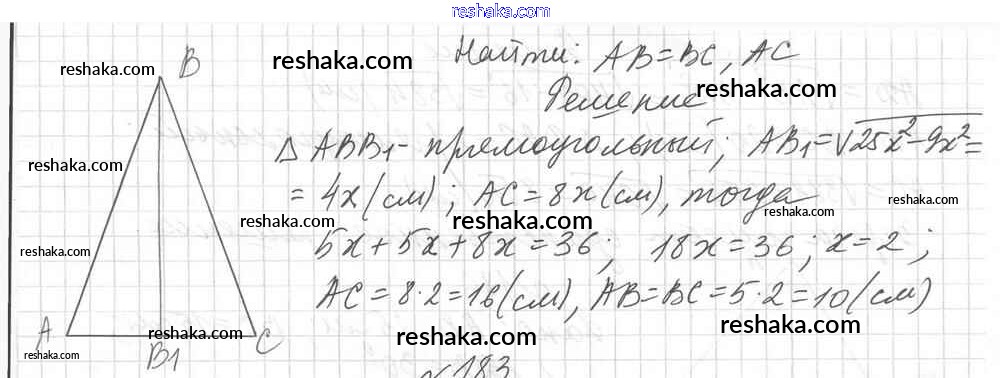 reshaka.com
Найти: AB=BC, AC
reshaka.com
reshaka.com
B
Решение
reshaka.com
△ABB1- прямоугольный; AB1=√25x²-9x²=
reshaka.com
=4x(см); AC=8x(см), тогда
reshaka.com
reshaka.com
reshaka.com
reshaka.com
5x+5x+8x=36; 18x=36; x=2;
reshaka.com
reshaka.com
AC=8·2=16(см), AB=BC=5·2=10(см)
A
reshaka.com
C
reshaka.com
reshaka.com
reshaka.com
B1
№183